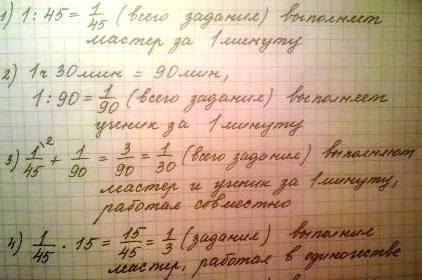 1) 1 : 45 = 1/45 (всего задания) выполняет
мастер за 1 минуту
2) 1ч 30мин = 90мин,
1 : 90 = 1/90 (всего задания) выполняет
ученик за 1 минуту
3) 1\2/45 + 1/90 = 3/90 = 1/30 (всего задания) выполняют
мастер и ученик за 1 минуту,
работая совместно
4) 1/45 · 15 = 15/45 = 1/3 (задания) выполнил
мастер, работая в одиночестве